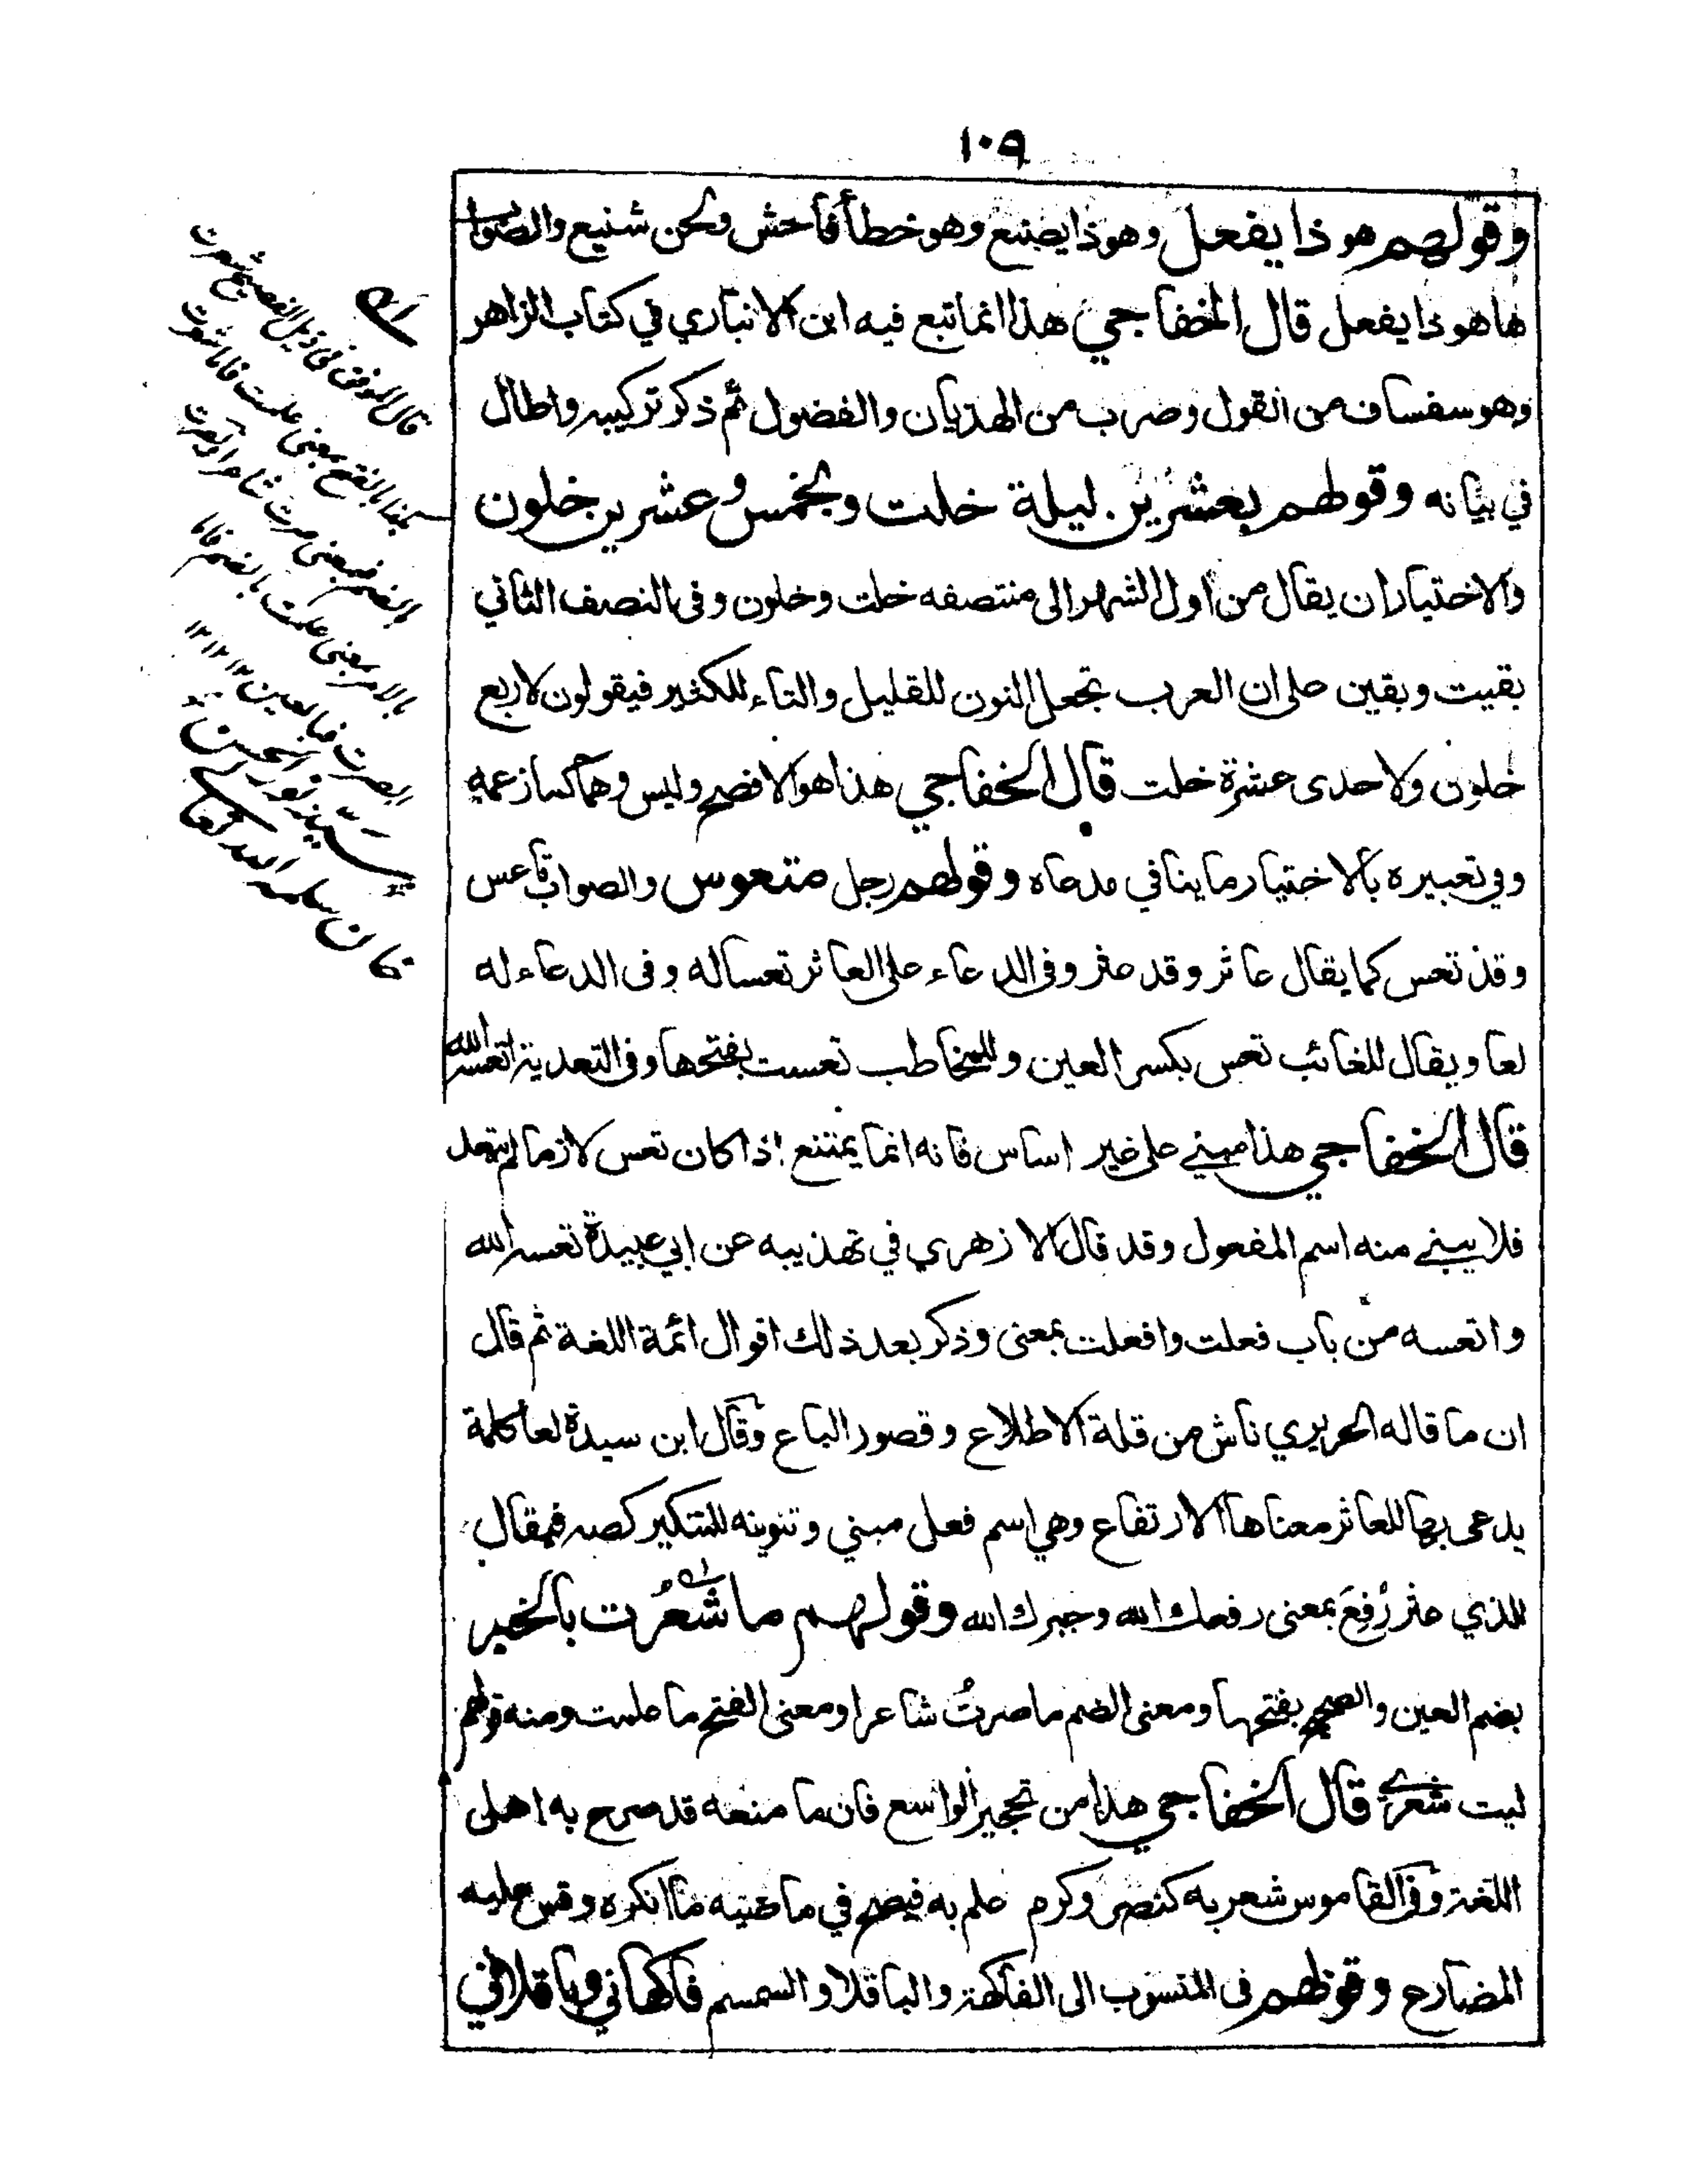 ١٠٩
وقولهم هو ذا يفعل وهو ذا يصنع وهو خطأ فاحش ولحن شنيع والصواب
ها هو ذا يفعل قال الخفاجي هذا انما تبع فيه ابن الانباري في كتاب الزاهر
وهو سفساف من القول وضرب من الهذيان والفضول ثم ذكر تركيبه واطال
في بيانه وقولهم بعشرين ليلة خلت وبخمس وعشرين خلون
والاختيار ان يقال من اول الشهر الى منتصفه خلت وخلون وفى النصف الثاني
بقيت وبقين على ان العرب تجعل النون للقليل والتاء للكثير فيقولون لاربع
خلون ولاحدى عشرة خلت قال الخفاجي هذا هو الافصح وليس وهما كما زعمه
وفي تعبيره بالاختيار ما ينافي مدعاه وقولهم رجل متعوس والصواب تاعس
وقد تعس كما يقال عاثر وقد عثر وفى الدعاء على العاثر تعسا له وفى الدعاء له
لعا ويقال للغائب تعس بكسر العين وللمخاطب تعست بفتحها وفى التعدية اتعسه الله
قال الخفاجي هذا مبني على غير اساس فانه انما يمتنع اذا كان تعس لازما لم يتعد
فلا يبنى منه اسم المفعول وقد قال الازهري في تهذيبه عن ابي عبيدة تعسه الله
واتعسه من باب فعلت وافعلت بمعنى وذكر بعد ذلك اقوال ائمة اللغة ثم قال
ان ما قاله الحريري ناش من قلة الاطلاع وقصور الباع وقال ابن سيدة لعا كلمة
يدعى بها للعاثر معناها الارتفاع وهي اسم فعل مبني وتنوينه للتنكير كصه فمقال
للذي عثر رُفِعَ بمعنى رفعك الله وجبرك الله وقولهم ما شعُرت بالخبر
بضم العين والصحيح بفتحها ومعنى الضم ما صرتُ شاعرا ومعنى الفتح ما علمت ومنه قولهم
ليت شعري قال الخفاجي هذا من تحجير الواسع فان ما منعه قد صرح به اهل
اللغة وفى القاموس شعر به كنصر وكرم علم به فيصح في ماضيه ما انكره وقس عليه
المضارع وقولهم فى المنسوب الى الفاكهة والباقلا والسمسم فاكهاني وباقلاني
قال الموفق فى ذيل الفصيح شعرت
بكذا بالفتح بمعنى علمت فاما شعرت
بالضم فبمعنى صرت شاعرا
بمعنى علمت بالضم فاما